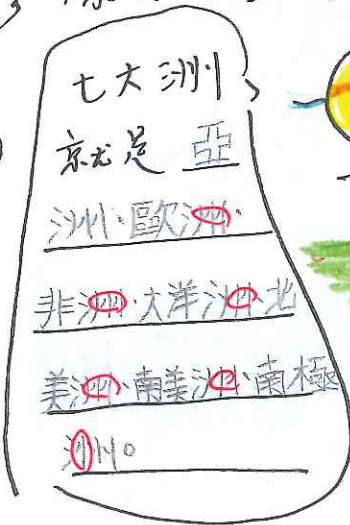 七大洲
就是亞
洲、歐洲、
非洲、大洋洲、北
美洲、南美洲、南極
洲。